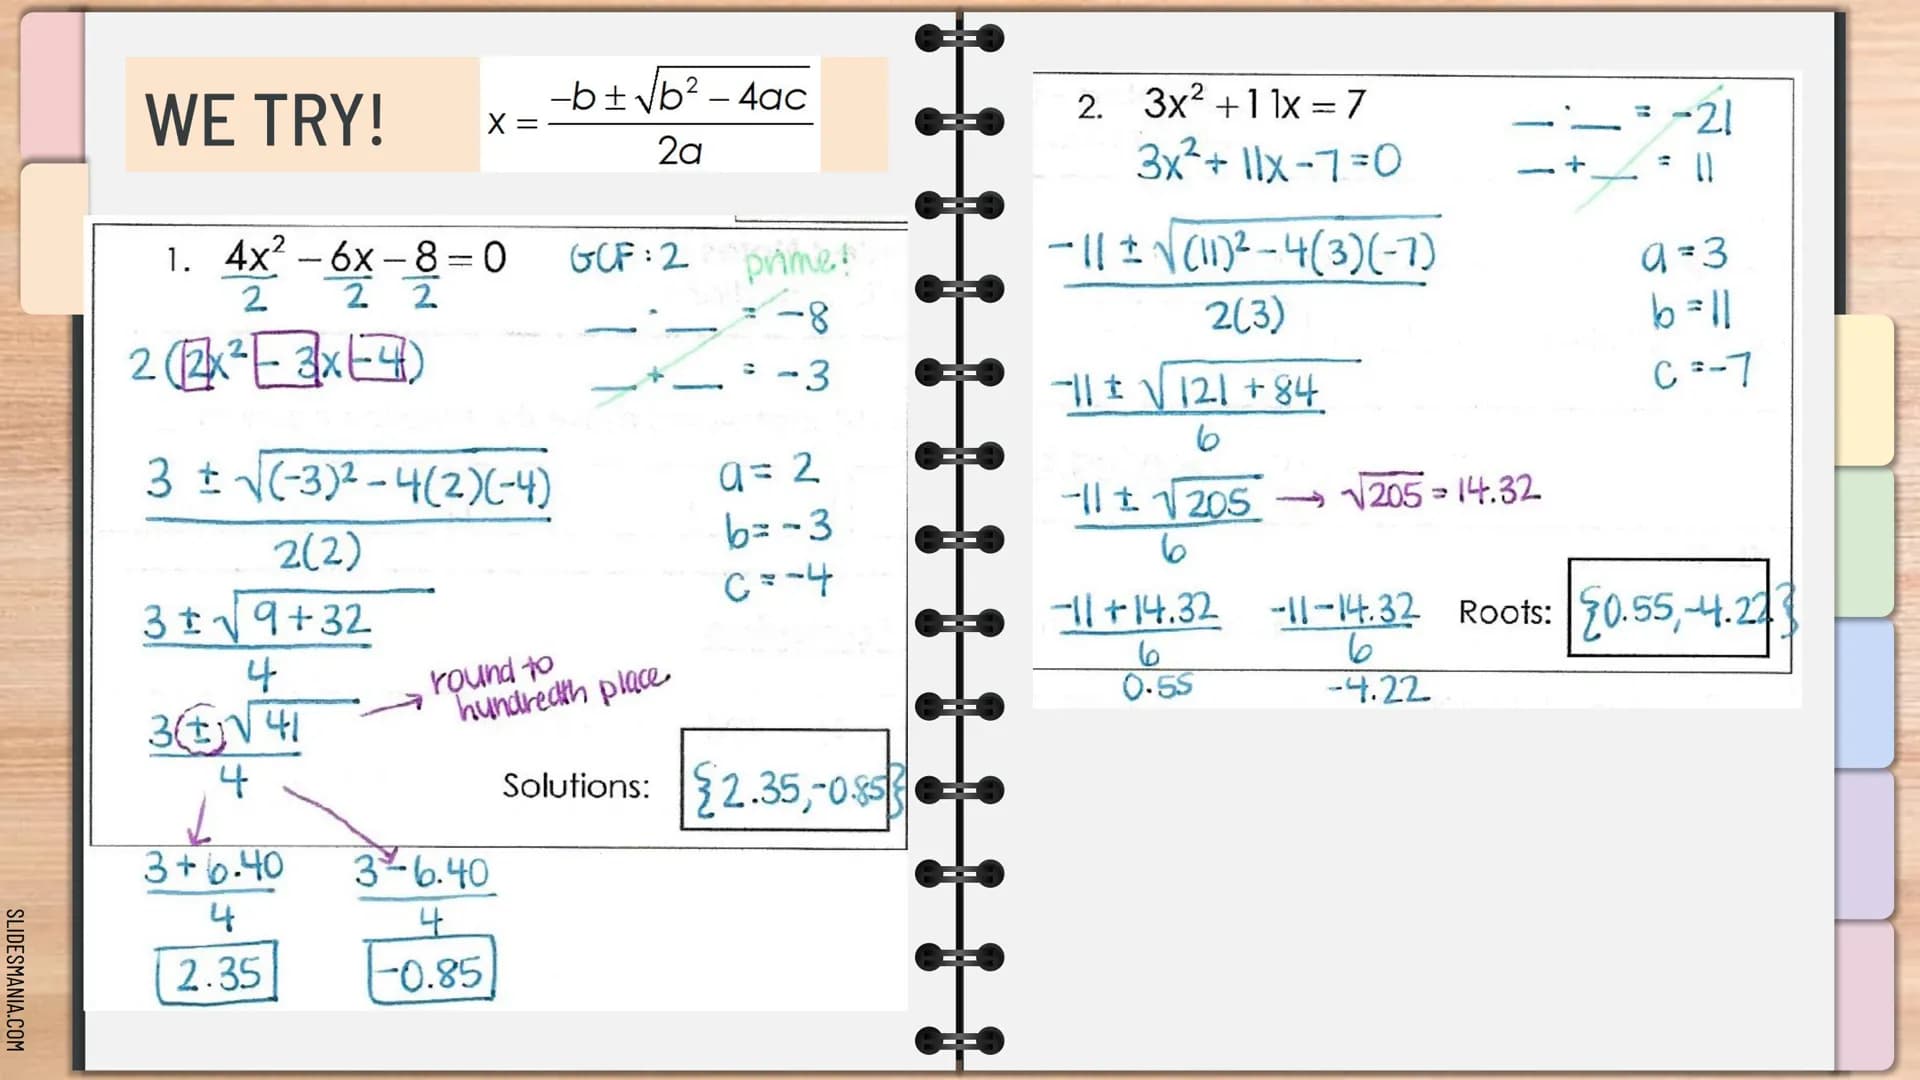 WE TRY!
x = (-b ± √(b² - 4ac)) / 2a
1. 4x² - 6x - 8 = 0
2 2 2
GCF: 2
prime!
__ · __ = -8
__ + __ = -3
2(2x² - 3x - 4)
3 ± √((-3)² - 4(2)(-4))
2(2)
a = 2
b = -3
c = -4
3 ± √(9 + 32)
4
3 ± √41
4
→ round to
hundredth place
Solutions: {2.35, -0.85}
3 + 6.40
4
2.35
3 - 6.40
4
-0.85
2. 3x² + 11x = 7
3x² + 11x - 7 = 0
__ · __ = -21
__ + __ = 11
-11 ± √((11)² - 4(3)(-7))
2(3)
a = 3
b = 11
c = -7
-11 ± √(121 + 84)
6
-11 ± √205 → √205 = 14.32
6
-11 + 14.32
6
0.55
-11 - 14.32
6
-4.22
Roots: {0.55, -4.22}
SLIDESMANIA.COM